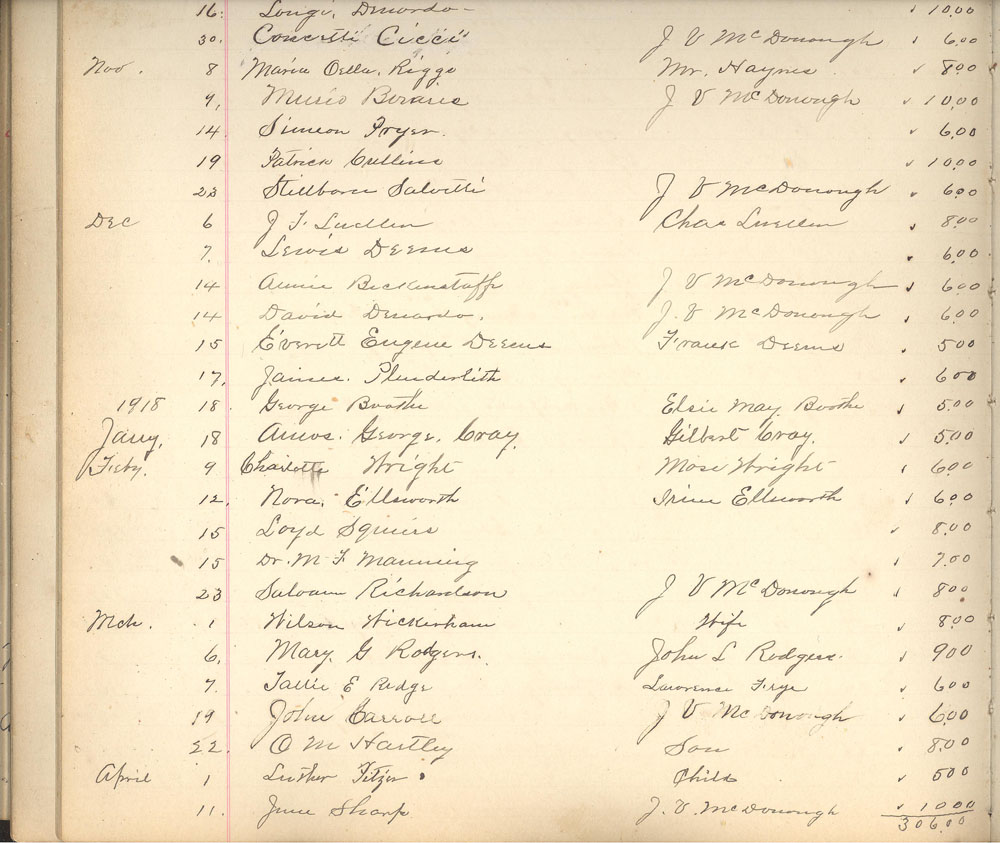 16. Longi. Dinardo - 10.00
30. Concetti Cicci J V McDonough 6.00
Nov. 8 Maria Oella. Riggs Mr. Haynes 8.00
9, Musio J V McDonough 10.00
14 Simeon Fryer. 6.00
19 Patrick Cullins 10.00
23 Stillborn Salvetti J V McDonough 6.00
Dec 6 J F Luellen Chas Luellen 8.00
7. Lewis Deems 6.00
14 Annie Bickenstaff J V McDonough 6.00
14 David Dinardo. J. V McDonough 6.00
15 Everett Eugene Deems Frank Deems 5.00
17, James. Plunderlith 6.00
1918 18. George Boothe Elsie May Boothe 5.00
Jany, 18 Amos. George. Cray, Gilbert Cray. 5.00
Feby. 9 Charlotte Wright Mose Wright 6.00
12, Nora. Ellsworth Ellsworth 6.00
15 Loyd Squires 8.00
15 Dr. M F Manning 7.00
23 Richardson J V McDonough 8.00
Mch. 1 Wilson Wickerham Wife 8.00
6, Mary. G Rodgers. John L Rodgers. 9.00
7. Tallie E Ridge Lawrence Frye 6.00
19 John Carroll J V McDonough 6.00
22. O M Hartley Son 8.00
April 1 Luther Fitzer. Child 5.00
11. June Sharp J. V. McDonough 10.00
306.00